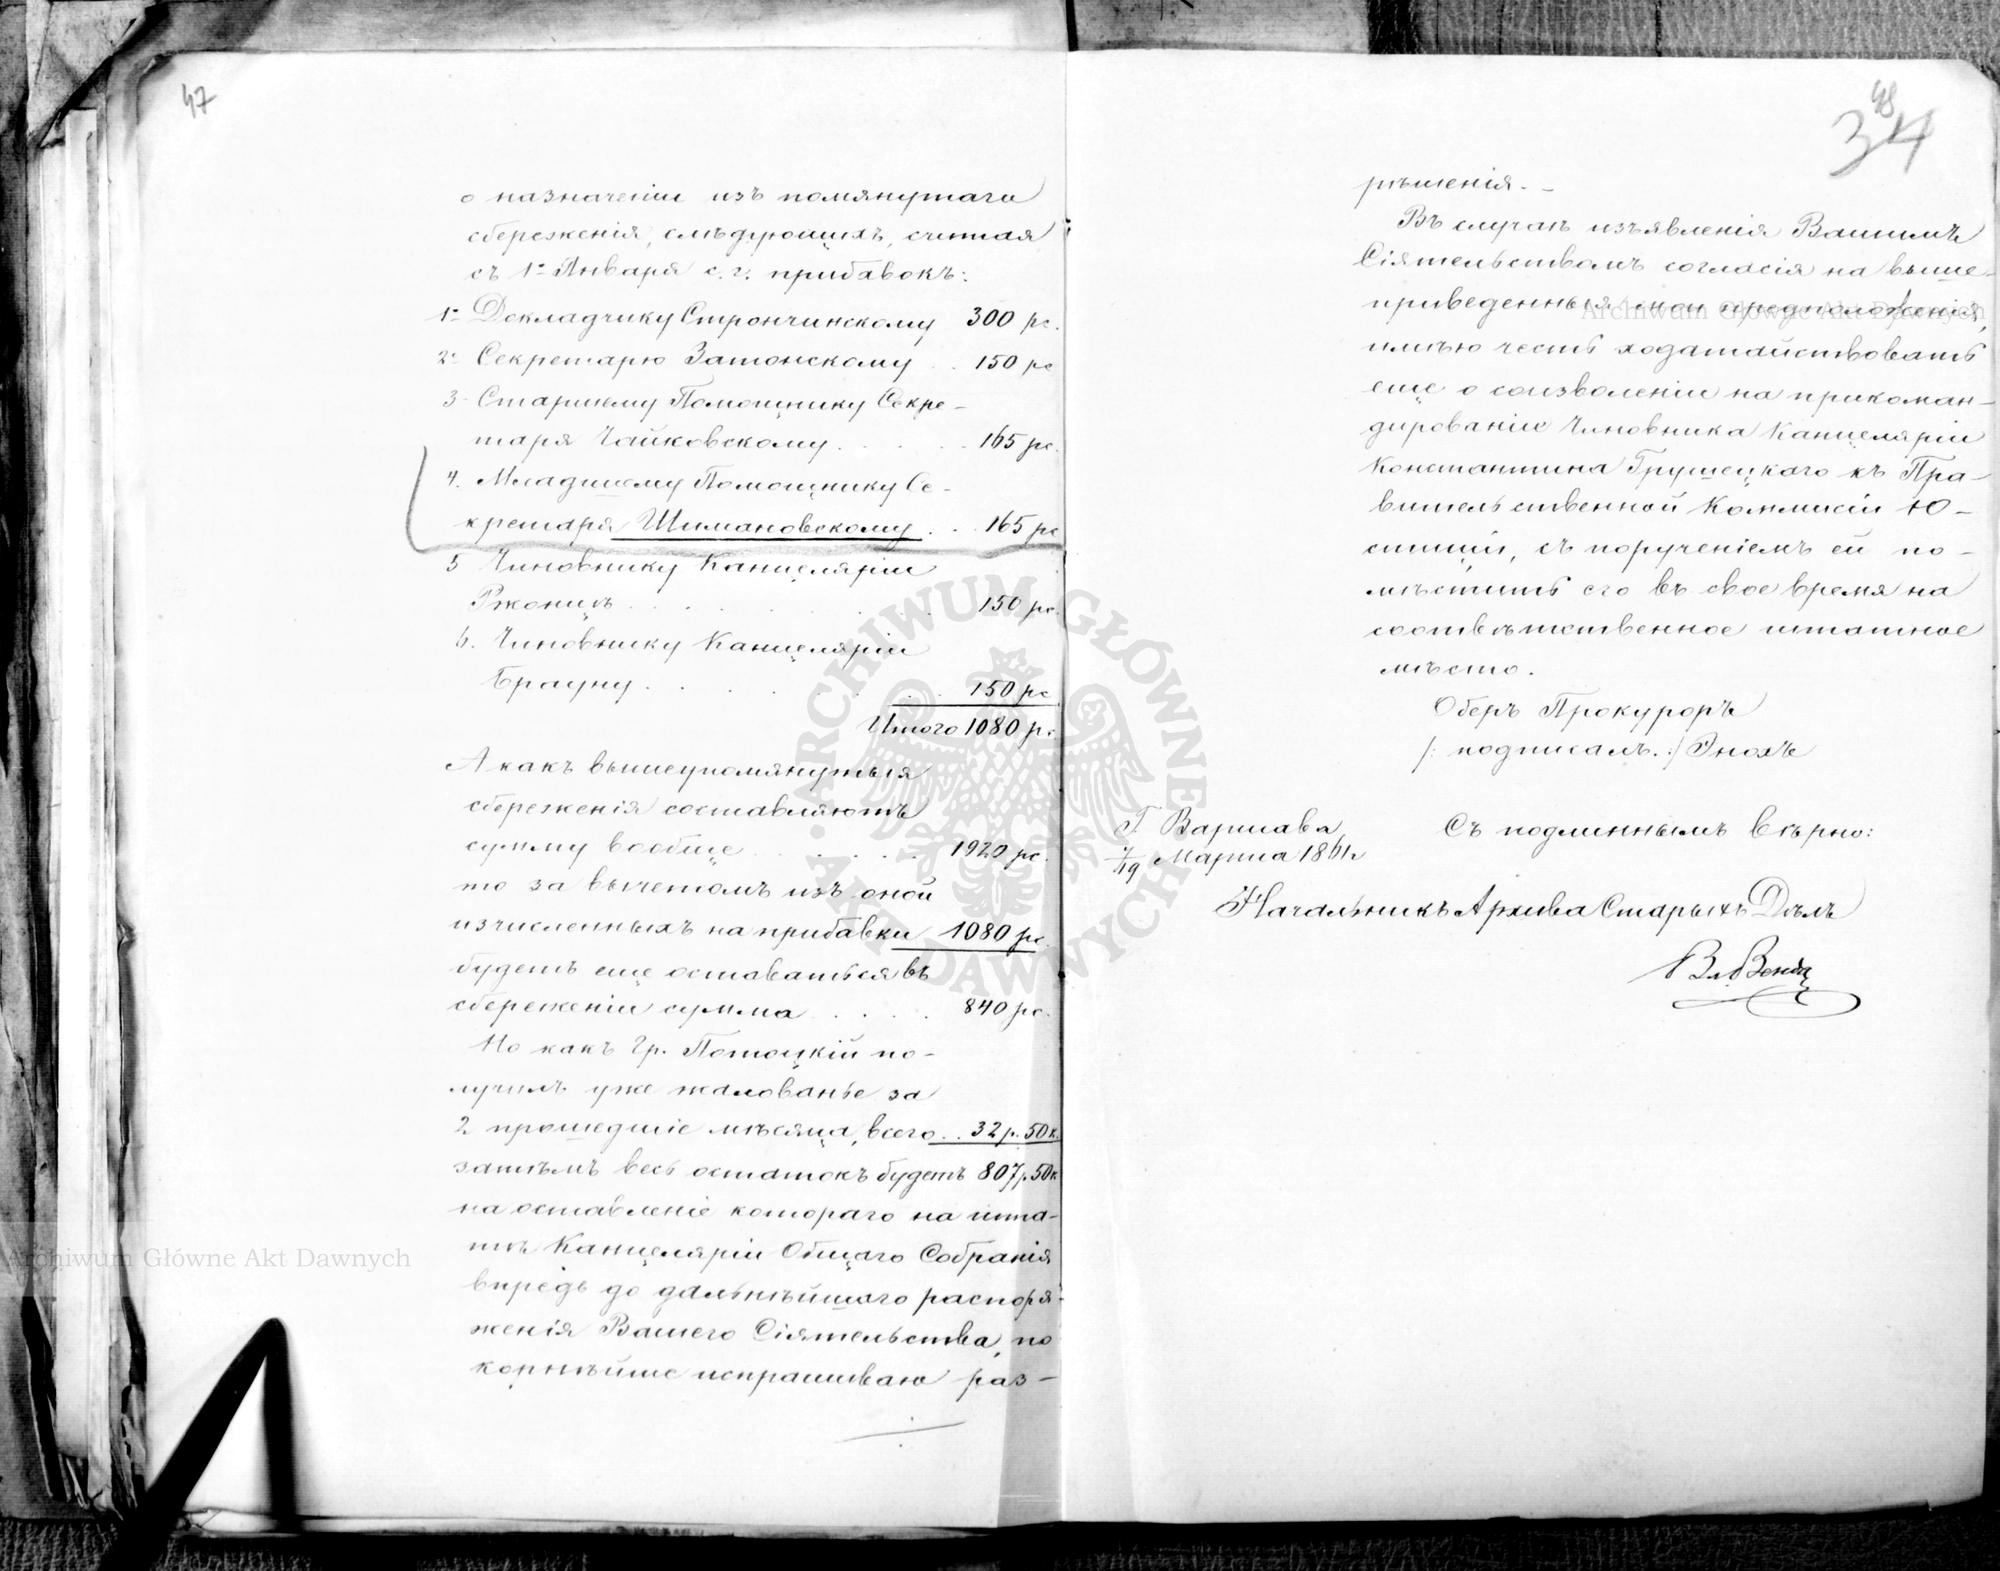 47
о назначеніи изъ помянутаго
сбереженія, слѣдующихъ, считая
съ 1го Января с. г. прибавокъ:
1е Докладчику Стрончинскому 300 рс.
2е Секретарю Затонскому . . 150 рс
3 Старшему Помощнику Секре-
таря Чайковскому . . . . . 165 рс.
4. Младшему Помощнику Се-
кретаря Шимановскому . . 165 рс
5 Чиновнику Канцеляріи
150 рс.
6. Чиновнику Канцеляріи
Брауну . . . . . . . 150 рс
Итого 1080 рс.
А какъ вышеупомянутыя
сбереженія составляютъ
сумму вообще . . . . . 1920 рс.
то за вычетомъ изъ оной
изчисленныхъ на прибавки 1080 рс.
будетъ еще оставаться въ
сбереженіи сумма . . . . . 840 рс.
Но какъ Гр. Потоцкій по-
лучилъ уже жалованье за
2 прошедшіе мѣсяца, всего . . 32 р. 50 к.
затѣмъ весь остатокъ будетъ 807 р. 50 к
на оставленіе котораго на шта-
тѣ Канцеляріи Общаго Собранія
впредь до дальнѣйшаго распоря-
женія Вашего Сіятельства, по
корнѣйше испрашиваю раз-
48
34
рѣшенія. -
Въ случаѣ изъявленія Вашимъ
Сіятельствомъ согласія на выше-
приведенныя мои предположенія,
имѣю честь ходатайствовать
еще о соизволеніи на прикоман-
дированіе Чиновника Канцеляріи
Константина Грушецкаго къ Пра-
вительственной Коммисіи Ю-
стиціи, съ порученіемъ ей по-
мѣстить его въ свое время на
соотвѣтственное штатное
мѣсто.
Оберъ Прокуроръ
/: подписалъ. :/ Энохъ
Г. Варшава
7/19 Марта 1861 г
Съ подлиннымъ вѣрно:
Начальникъ Архива Старыхъ Дѣлъ
Вл. Венда
Archiwum Główne Akt Dawnych
Archiwum Główne Akt Dawnych
ARCHIWUM GŁÓWNE · AKT DAWNYCH ·